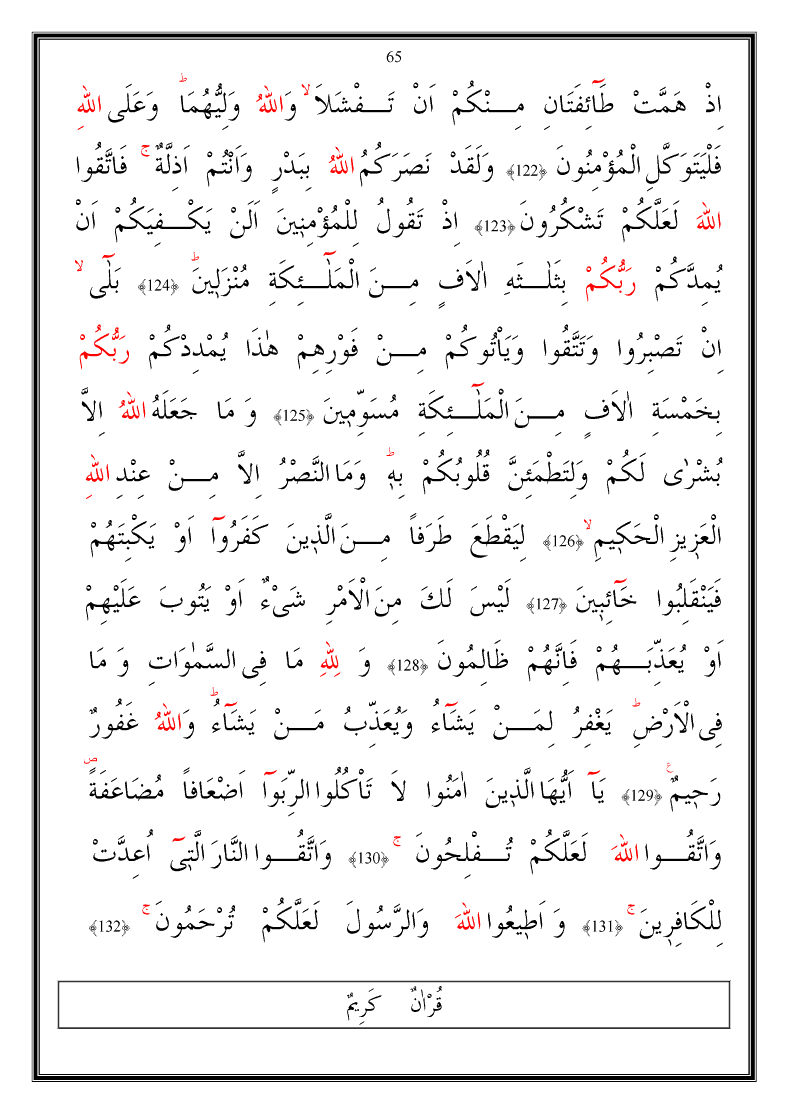 65
اِذْ هَمَّتْ طَٓائِفَتَانِ مِـــنْكُمْ اَنْ تَـــفْشَلَاۙ وَاللّٰهُ وَلِيُّهُمَاۜ وَعَلَى اللّٰهِ
فَلْيَتَوَكَّلِ الْمُؤْمِنُونَ ﴿122﴾ وَلَقَدْ نَصَرَكُمُ اللّٰهُ بِبَدْرٍ وَاَنْتُمْ اَذِلَّةٌۚ فَاتَّقُوا
اللّٰهَ لَعَلَّكُمْ تَشْكُرُونَ ﴿123﴾ اِذْ تَقُولُ لِلْمُؤْمِنٖينَ اَلَنْ يَكْـــفِيَكُمْ اَنْ
يُمِدَّكُمْ رَبُّكُمْ بِثَلٰـــثَهِ اٰلَافٍ مِـــنَ الْمَلٰٓـــئِكَةِ مُنْزَلٖينَۜ ﴿124﴾ بَلٰٓىۙ
اِنْ تَصْبِرُوا وَتَتَّقُوا وَيَاْتُوكُمْ مِـــنْ فَوْرِهِمْ هٰذَا يُمْدِدْكُمْ رَبُّكُمْ
بِخَمْسَةِ اٰلَافٍ مِـــنَ الْمَلٰٓـــئِكَةِ مُسَوِّمٖينَ ﴿125﴾ وَ مَا جَعَلَهُ اللّٰهُ اِلاَّ
بُشْرٰى لَكُمْ وَلِتَطْمَئِنَّ قُلُوبُكُمْ بِهٖۜ وَمَا النَّصْرُ اِلاَّ مِـــنْ عِنْدِ اللّٰهِ
الْعَزٖيزِ الْحَكٖيمِۙ ﴿126﴾ لِيَقْطَعَ طَرَفاً مِـــنَ الَّذٖينَ كَفَرُوٓا اَوْ يَكْبِتَهُمْ
فَيَنْقَلِبُوا خَٓائِبٖينَ ﴿127﴾ لَيْسَ لَكَ مِنَ الْاَمْرِ شَیْءٌ اَوْ يَتُوبَ عَلَيْهِمْ
اَوْ يُعَذِّبَـــهُمْ فَاِنَّهُمْ ظَالِمُونَ ﴿128﴾ وَ لِلّٰهِ مَا فِى السَّمٰوَاتِ وَ مَا
فِى الْاَرْضِۜ يَغْفِرُ لِمَـــنْ يَشَٓاءُ وَيُعَذِّبُ مَـــنْ يَشَٓاءُۜ وَاللّٰهُ غَفُورٌ
رَحٖيمٌࣖ ﴿129﴾ يَٓا اَيُّهَا الَّذٖينَ اٰمَنُوا لاَ تَاْكُلُوا الرِّبَوٓا اَضْعَافاً مُضَاعَفَةًࣕ
وَاتَّقُـــوا اللّٰهَ لَعَلَّكُمْ تُـــفْلِحُونَۚ ﴿130﴾ وَاتَّقُـــوا النَّارَ الَّتٖٓى اُعِدَّتْ
لِلْكَافِرٖينَۚ ﴿131﴾ وَ اَطٖيعُوا اللّٰهَ وَالرَّسُولَ لَعَلَّكُمْ تُرْحَمُونَۚ ﴿132﴾
قُرْاٰنٌ كَرِيمٌ